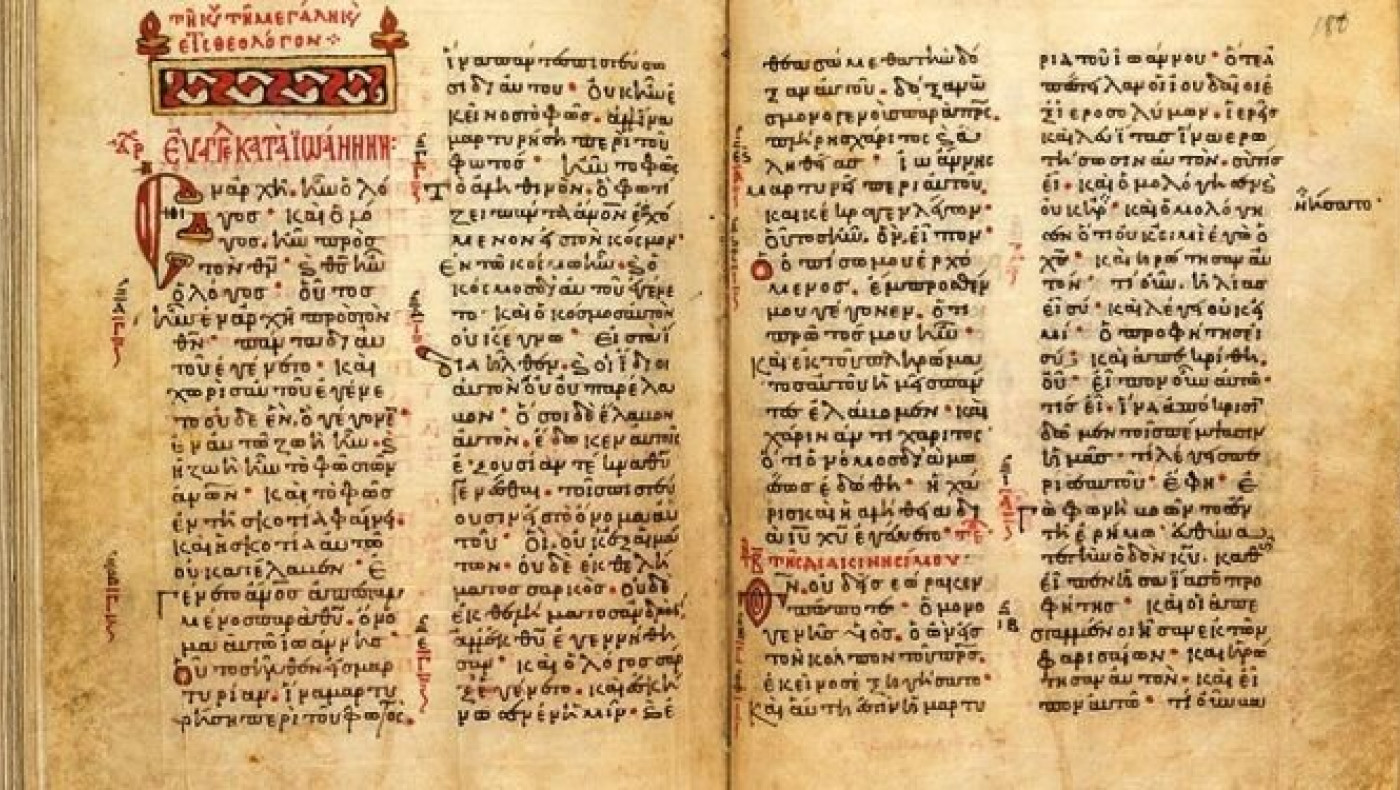 ΕΥΑΓΓ ΚΑΤΑ ΙΩΑΝΝΗΝ:
Ἐν ἀρχῆ. ἦν ὁ λό
γος · καὶ ὁ λό
γος. ἦν πρὸς
τὸν θν̅ · ϗ θς̅ ἦν
ὁ λόγος · οὗτος
ἦν ἐν ἀρχῆ πρὸς τὸν
θν̅ · πάντα δι αὐ
τοῦ ἐγένετο · καὶ
χωρὶς αὐτοῦ ἐγένε
το οὐδὲ ἕν. ὃ γέγονεν ·
ἐν αὐτῶ ζωὴ ἦν · ϗ
ἡ ζωὴ ἦν τὸ φῶς τῶν
ἀνων̅ · καὶ τὸ φῶς
ἐν τῆ σκοτία φαίνει ·
καὶ ἡ σκοτία αὐτὸ
οὐ κατέλαβεν · Ἐ
γένετο ἄνος̅ ἀπεσταλ
μένος παρὰ θυ̅. ὄνο
μα αὐτῶ ἰωάννης ·
Οὗτος ἦλθεν εἰς μαρ
τυρίαν. ἵνα μαρτυ
ρήση περὶ τοῦ φωτός ·
ἵνα πάντες πιστεύσω
σι δι αὐτοῦ · Οὐκ ἦν ἐ
κεῖνος τὸ φῶς. ἀλλ ἵνα
μαρτυρήση περὶ τοῦ
φωτός · ἦν τὸ φῶς
Τὸ ἀληθινὸν. ὃ φωτί
ζει πάντα ἄνον̅ ἐρχό
μενον εἰς τὸν κόσμον ·
Ἐν τῶ κόσμω ἦν · ϗ ὁ
κόσμος δι αὐτοῦ ἐγένε
το · καὶ ὁ κόσμος αὐτὸν
οὐκ ἔγνω · Εἰς τὰ ἴ
δΙΑ ἦλθεν. ϗ οἱ ἴδιοι
αὐτὸν οὐ παρέλα
βον · ὅσοι δὲ ἔλαβον
αὐτὸν. ἔδωκεν αὐτοῖς
ἐξουσίαν τέκνα θυ̅
γενέσθαι. τοῖς πιστεύ
ουσιν εἰς τὸ ὄνομα αὐ
τοῦ · Οἳ. οὐκ ἐξ αἱμά
των · οὐδὲ ἐκ θελή
ματος σαρκὸς · Οὐδὲ
ἐκ θελήματος ἀνδρός.
ἀλλ ἐκ θυ̅ ἐγεννήθη
σαν · καὶ ὁ λόγος σὰρ
ξ ἐγένετο · καὶ ἐσκή
νωσεν ἐν ἡμῖν · ϗ ἐ
θεασάμεθα τὴν δό
ξαν αὐτοῦ. δόξαν ὡ
ς μονογενοῦς παρὰ πρς̅.
πλήρης χάριτος ϗ ἀ
ληθείας · ἰωάννης
μαρτυρεῖ περὶ αὐτοῦ.
καὶ κέκραγεν λέγων ·
Οὗτος ἦν. ὃν εἶπον ·
Ὁ ὀπίσω μου ἐρχό
μενος. ἔμπροσθέν
μου γέγονεν. ὅτι
πρῶτός μου ἦν ·
Καὶ ἐκ τοῦ πληρώμα
τος αὐτοῦ ἡμεῖς πάν
τες ἐλάβομεν · καὶ
χάριν ἀντὶ χάριτος ·
Ὅτι ὁ νόμος διὰ μω
σέως ἐδόθη · ἡ χά
ρις καὶ ἡ ἀλήθεια δι
ὰ ιυ̅ χυ̅ ἐγένετο ·
ΤΗ Β ΤΗς ΔΙΑΚΙΝΗςΙΜΟΥ ·
Θν̅. οὐδεὶς ἑώρακεν
πώποτε · ὁ μονο
γενὴς υἱὸς. ὁ ὢν εἰς
τὸν κόλπον τοῦ πρς̅.
ἐκεῖνος ἐξηγήσατο ·
Καὶ αὕτη ἐστὶν ἡ μαρτυ
ρία τοῦ ἰωάννου · ὅτε ἀ
πέστειλαν οἱ ἰουδαῖοι ἐ
ξ ἱεροσολύμων. ἱερεῖς
καὶ λευίτας ἵνα ἐρω
τήσωσιν αὐτὸν. σὺ τίς
εἶ · καὶ ὡμολόγησεν ϗ
οὐκ ἠρ · καὶ ὡμολόγη
σεν ὅτι οὐκ εἰμὶ ἐγὼ ὁ
χς̅ · καὶ ἠρώτησαν αὐ
τὸν · τί οὖν. ἠλίας
εἶ σύ · καὶ λέγει οὐκ εἰ
μί · ὁ προφήτης εἶ
σύ; καὶ ἀπεκρίθη.
οὔ · εἶπον οὖν αὐτῶ ·
τίς εἶ · ἵνα ἀπόκρισι
δῶμεν τοῖς πέμψασιν
ἡμᾶς · τί λέγεις πε
ρὶ σεαυτοῦ · ἔφη · Ἐ
Γὼ φωνὴ βοῶντος ἐν
τῆ ἐρήμω · εὐθύνα
τε τὴν ὁδὸν κυ̅. καθὼς
εἶπεν ἠσαΐας ὁ προ
φήτης · καὶ οἱ ἀπε
σταλμένοι ἦσαν ἐκ τῶν
φαρισαίων · καὶ ἠρώ
τησαν αὐτὸν · καὶ εἶ
πον αὐτῶ · τί οὖν βα
ἠρνήσατο ·
180